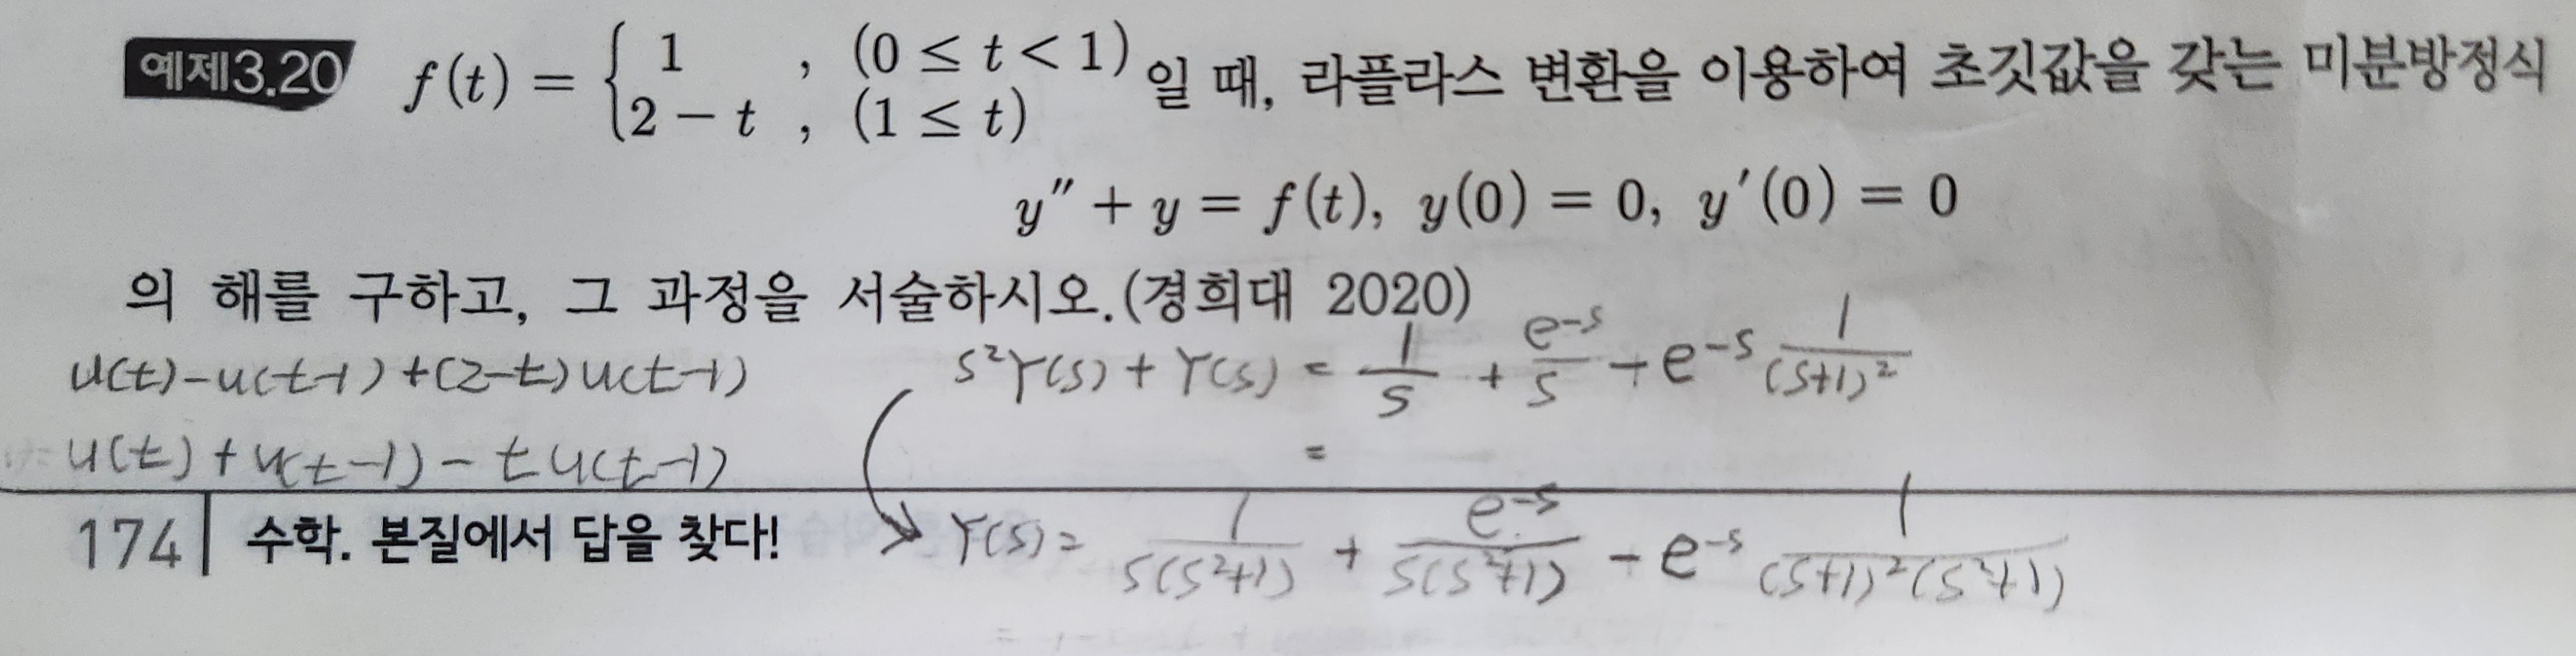 예제3.20 f(t) = { 1 , (0 ≤ t < 1) 2 − t , (1 ≤ t) 일 때, 라플라스 변환을 이용하여 초깃값을 갖는 미분방정식
y″ + y = f(t), y(0) = 0, y′(0) = 0
의 해를 구하고, 그 과정을 서술하시오.(경희대 2020)
u(t)−u(t−1)+(2−t)u(t−1)
u(t)+u(t−1)−tu(t−1)
s²Y(s)+Y(s) = 1/s + e^−s/s − e^−s 1/(s+1)²
=
Y(s)= 1/s(s²+1) + e^−s/s(s²+1) − e^−s 1/(s+1)²(s²+1)
174 수학. 본질에서 답을 찾다!